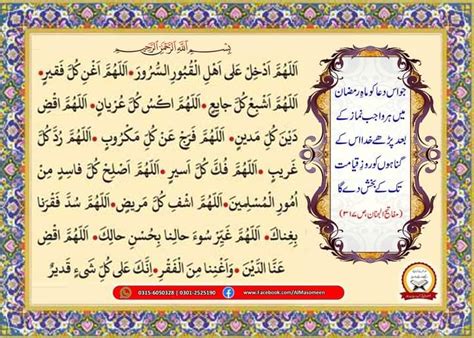 بِسْمِ اللهِ الرَّحْمٰنِ الرَّحِيْمِ
اَللّٰهُمَّ اَدْخِلْ عَلٰى اَهْلِ الْقُبُوْرِ السُّرُوْرَ • اَللّٰهُمَّ اَغْنِ كُلَّ فَقِيْرٍ •
اَللّٰهُمَّ اَشْبِعْ كُلَّ جَايِعٍ • اَللّٰهُمَّ اكْسُ كُلَّ عُرْيَانٍ • اَللّٰهُمَّ اقْضِ
دَيْنَ كُلِّ مَدِيْنٍ • اَللّٰهُمَّ فَرِّجْ عَنْ كُلِّ مَكْرُوْبٍ • اَللّٰهُمَّ رُدَّ كُلَّ
غَرِيْبٍ • اَللّٰهُمَّ فُكَّ كُلَّ اَسِيْرٍ • اَللّٰهُمَّ اَصْلِحْ كُلَّ فَاسِدٍ مِنْ
اُمُوْرِ الْمُسْلِمِيْنَ • اَللّٰهُمَّ اشْفِ كُلَّ مَرِيْضٍ • اَللّٰهُمَّ سُدَّ فَقْرَنَا
بِغِنَاكَ • اَللّٰهُمَّ غَيِّرْ سُوْءَ حَالِنَا بِحُسْنِ حَالِكَ • اَللّٰهُمَّ اقْضِ
عَنَّا الدَّيْنَ • وَاَغْنِنَا مِنَ الْفَقْرِ • اِنَّكَ عَلٰى كُلِّ شَىْءٍ قَدِيْرٌ
جو اس دعا کو ماہِ رمضان
میں ہر واجب نماز کے
بعد پڑھے خدا اس کے
گناہوں کو روزِ قیامت
تک کے بخش دے گا
(مفاتیح الجنان، ص ۳۱۷)
0315-6050328 | 0301-2525190
www.Facebook.com/AlMasomeen